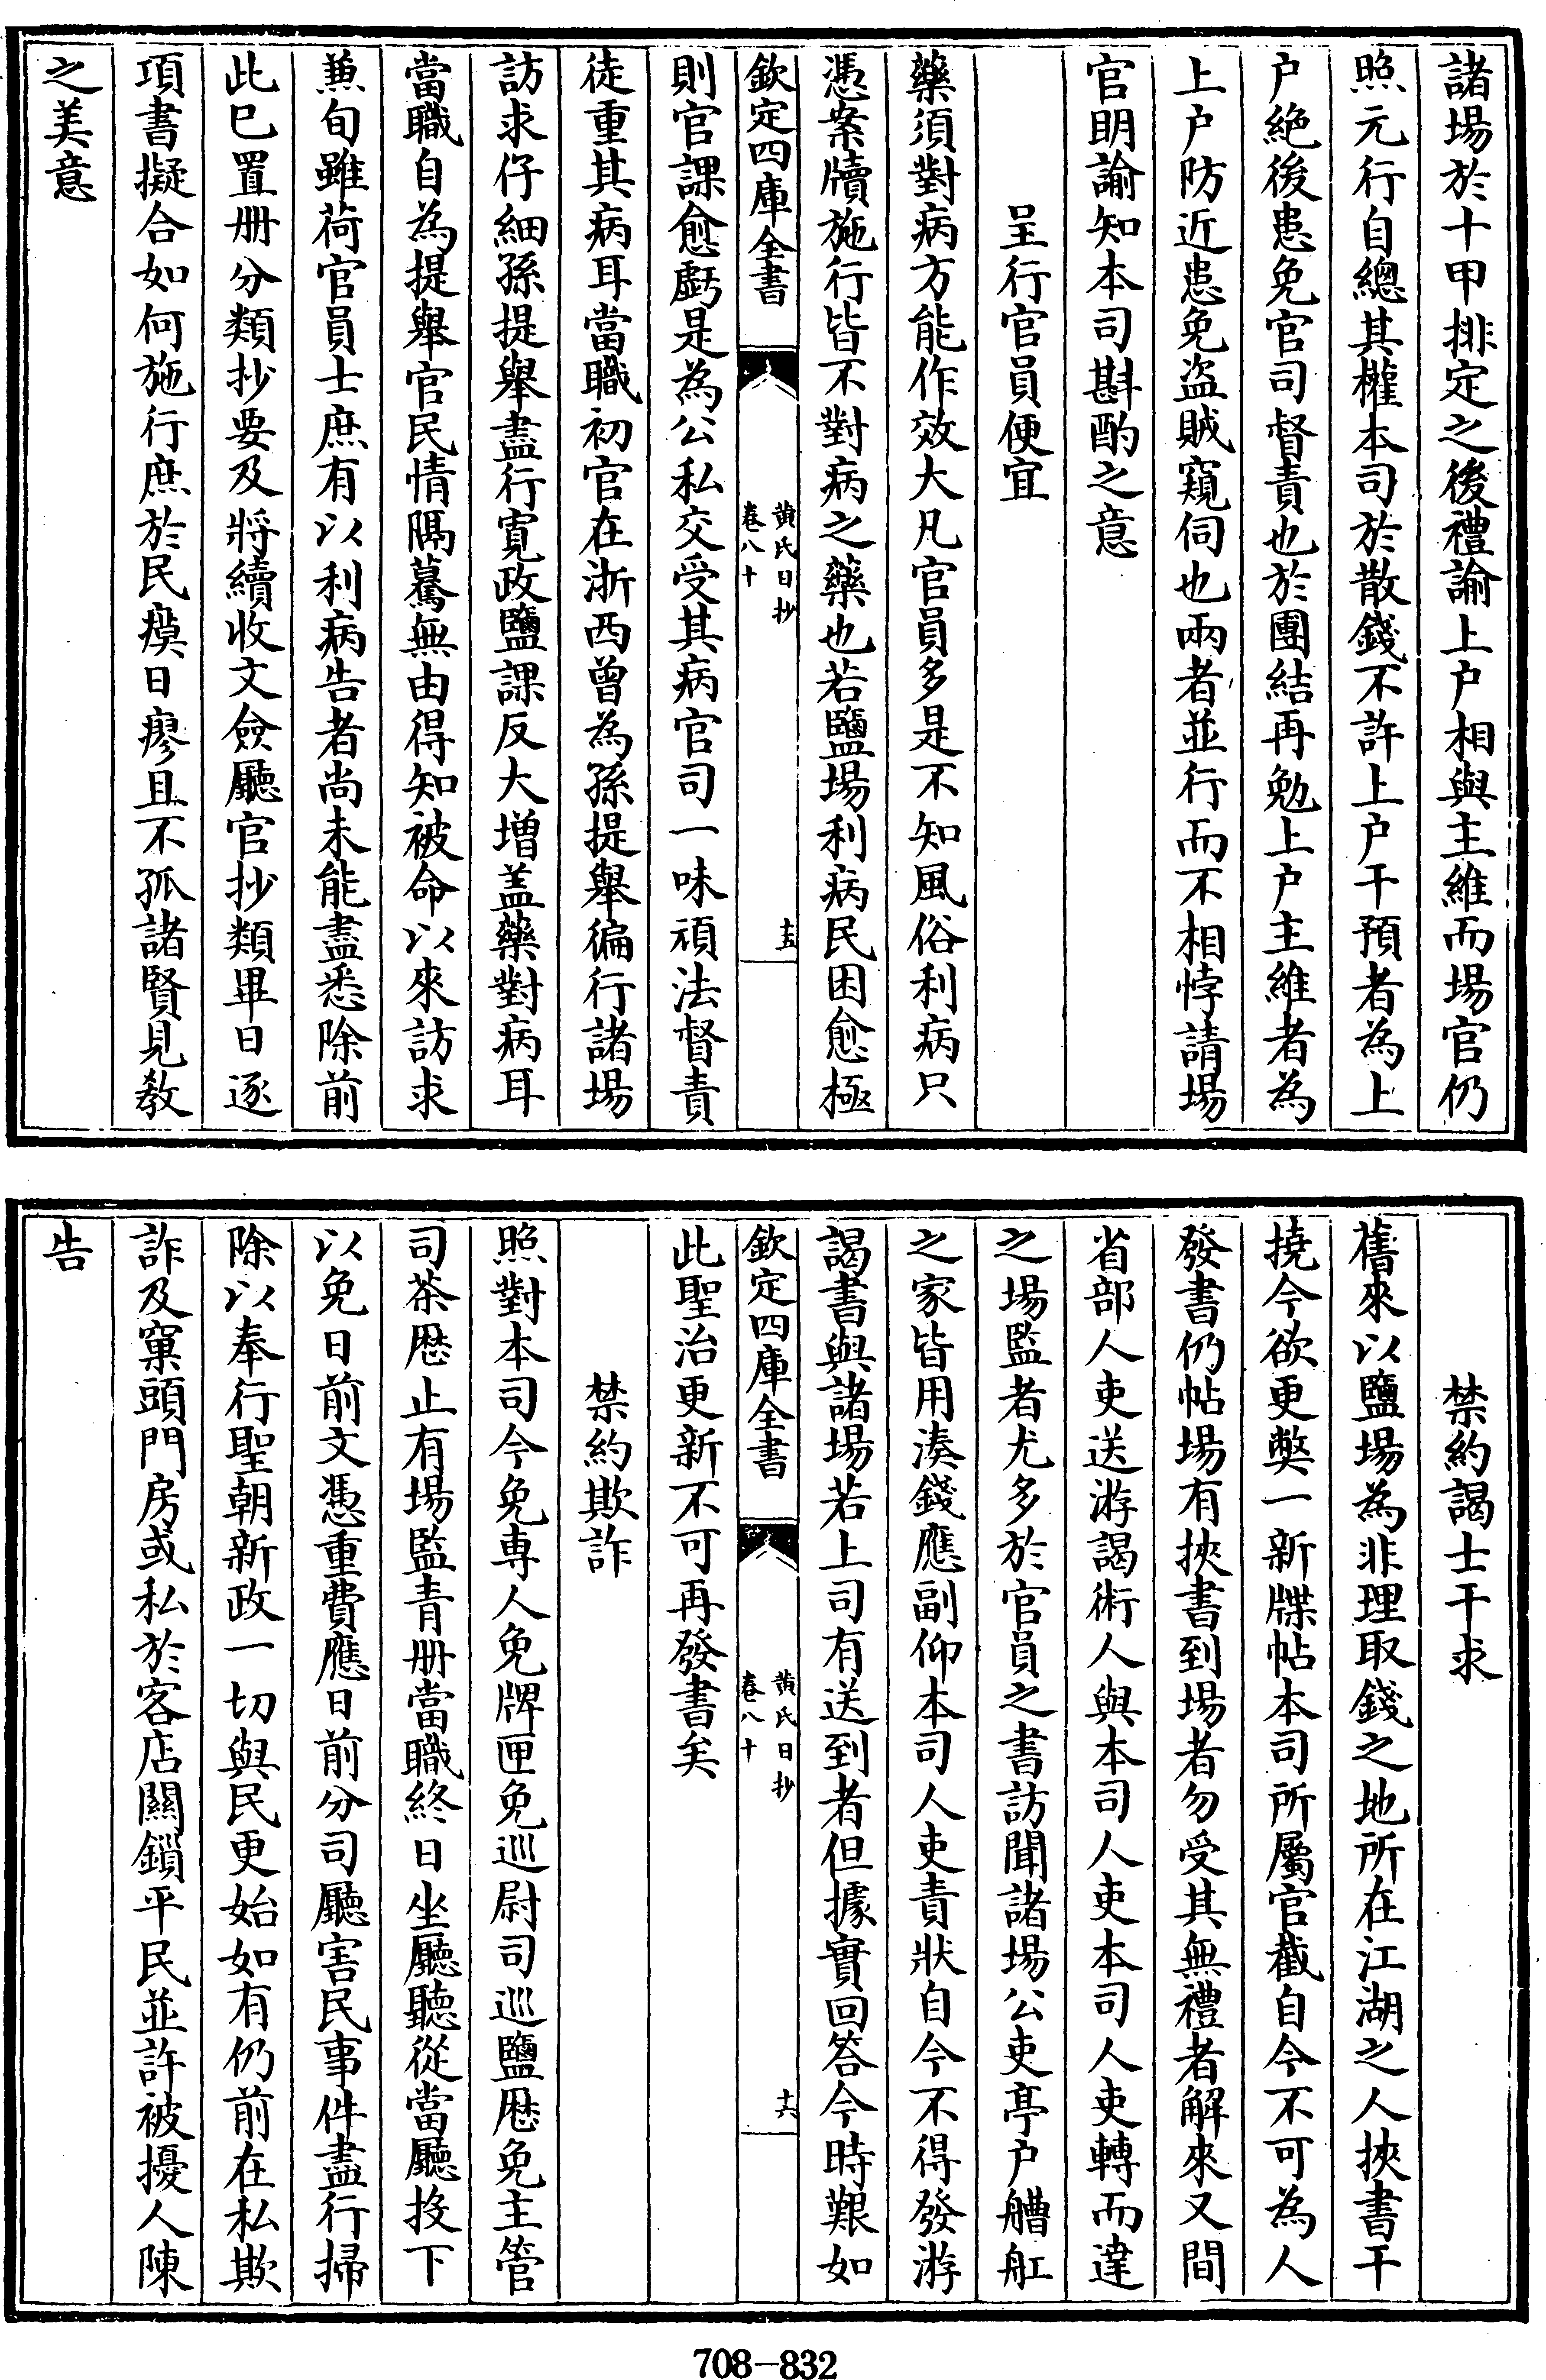 諸場於十甲排定之後禮諭上户相與主維而場官仍
照元行自總其權本司於散錢不許上户干預者為上
户絶後患免官司督責也於團結再勉上户主維者為
上户防近患免盜賊窺伺也兩者並行而不相悖請場
官明諭知本司斟酌之意
呈行官員便宜
藥須對病方能作效大凡官員多是不知風俗利病只
憑案牘施行皆不對病之藥也若鹽場利病民困愈極
欽定四庫全書
黄氏日抄
卷八十
十五
則官課愈虧是為公私交受其病官司一味頑法督責
徒重其病耳當職初官在浙西曾為孫提舉徧行諸場
訪求仔細孫提舉盡行寛政鹽課反大增盖藥對病耳
當職自為提舉官民情隔驀無由得知被命以來訪求
兼旬雖荷官員士庶有以利病告者尚未能盡悉除前
此已置册分類抄要及將續收文僉廳官抄類畢日逐
項書擬合如何施行庶於民瘼日瘳且不孤諸賢見教
之美意
禁約謁士干求
舊來以鹽場為非理取錢之地所在江湖之人挾書干
撓今欲更獘一新牒帖本司所屬官截自今不可為人
發書仍帖場有挾書到場者勿受其無禮者解來又間
省部人吏送游謁術人與本司人吏本司人吏轉而達
之場監者尤多於官員之書訪聞諸場公吏亭户艚舡
之家皆用湊錢應副仰本司人吏責狀自今不得發游
謁書與諸場若上司有送到者但據實回答今時艱如
欽定四庫全書
黄氏日抄
卷八十
十六
此聖治更新不可再發書矣
禁約欺詐
照對本司今免専人免牌匣免巡尉司巡鹽厯免主管
司茶厯止有場監青册當職終日坐廳聽從當廳投下
以免日前文憑重費應日前分司廳害民事件盡行掃
除以奉行聖朝新政一切與民更始如有仍前在私欺
詐及窠頭門房或私於客店關鎖平民並許被擾人陳
告
708-832